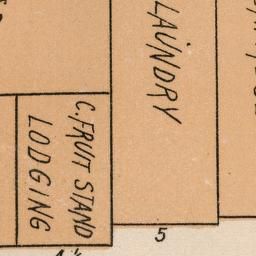 LAUNDRY
C. FRUIT STAND
LODGING
5